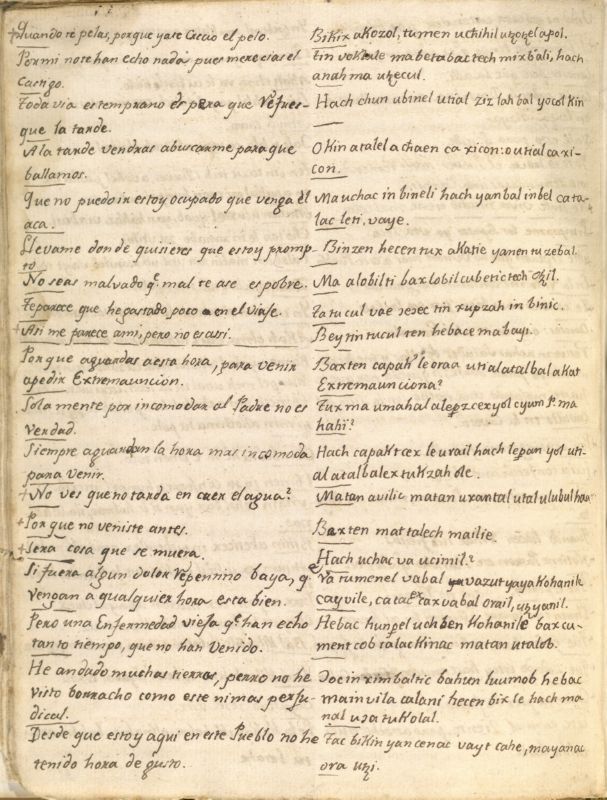 + Quando te pelas, porque yase Cacio el pelo.
Bikix akozol, tumen uchihil utzotzel apol.
Por mi note han echo nada pues merecias el
Castigo.
tin voklale mabetabac tech mixbali, hach
anah ma utzecul.
Toda via es temprano es pera que Refres-
que la tarde.
Hach chun ubinel utial ziz lahbal yocol kin
A la tarde vendras abuscarme para que
ballamos.
Okin atalel achaen ca xicon: o utial ca xi-
con.
Que no puedo ir estoy ocupado que venga el
aca.
Ma uchac in bineli hach yanbal inbel cata-
lac leti, vaye.
Llevame donde quisieres que estoy promp-
to
Binzen hecen tux akatie yanen tu zebal.
No seas malvado q.e mal te ase es pobre.
Ma alobilti bax lobil cubetic tech otzil.
Teparece que he gastado poco en el viaje.
ta tucul vae tin xupzah in binic.
+ Asi me parece ami, pero no es assi.
Bey tin tucul ten hebace ma bayi.
Por que aguardas a esta hora, para venir
apedir Extremauncion.
Baxten capak le oraa utial atalbal akat
Extremaunciona?
Sola mente por incomodar al Padre no es
Verdad.
Tux ma umahal alepzcex yol cyum P.e ma
hahi?
Siempre aguardan la hora mas incomoda
para venir.
Hach capaktcex le urail hach lepan yol uti-
al atalbalex tukzah ole.
+ No ves que no tarda en caer el agua?
Matan avilic matan uxantal utal ulubul haa
+ Por que no veniste antes.
Baxten mat talech mailie.
+ Sera cosa que se muera.
Hach uchac va ucimil?
Si fuera algun dolor Repennino baya, q.e
vengan a qualquier hora esta bien.
Va tumenel vabal vazut yaya kohanil
cayvile, catac tax vabal orail, utz yanil.
Pero una Enfermedad vieja q.e han echo
tanto tiempo, que no han Venido.
Hebac hunpel uchben kohanile bax cu-
ment cob talackinac matan utalob.
He andado muchas tierras, perro no he
visto borracho como este nimas perju-
dical.
Doc in ximbaltic bahun luumob hebac
mainvila calani hecen bix le hach ma
nal uya tukolal.
Desde que estoy aqui en este Pueblo no he
tenido hora de gusto.
Tac bikin yancenac vay t cahe, mayanac
ora utzi.